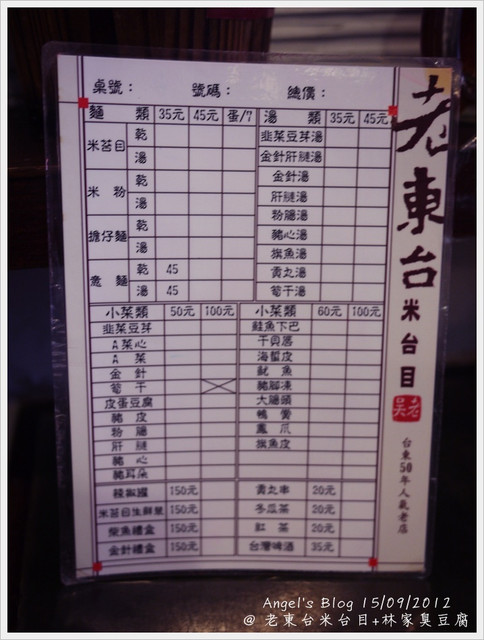 桌號： 號碼： 總價：
麵 類 35元 45元 蛋/7 湯 類 35元 45元
米苔目 乾 韭菜豆芽湯
湯 金針肝膶湯
米 粉 乾 金針湯
湯 肝膶湯
粉腸湯
擔仔麵 乾 豬心湯
湯 旗魚湯
意 麵 乾 45 貢丸湯
湯 45 筍干湯
小菜類 50元 100元 小菜類 60元 100元
韭菜豆芽 鮭魚下巴
A菜心 干貝唇
A 菜 海蜇皮
金 針 魷 魚
筍 干 豬腳凍
皮蛋豆腐 大腸頭
豬 皮 鴨 賞
粉 腸 鳳 爪
肝 膶 旗魚皮
豬 心
豬耳朵
辣椒罐 150元 貢丸串 20元
米苔目生鮮盒 150元 冬瓜茶 20元
柴魚禮盒 150元 紅 茶 20元
金針禮盒 150元 台灣啤酒 35元
老東台
米台目
老吳
台東50年人氣老店
Angel's Blog 15/09/2012
@ 老東台米台目+林家臭豆腐